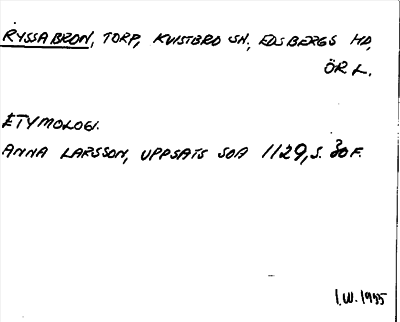 RYSSABRON, TORP, KVISTBRO SN, EDSBERGS HD,
ÖR L.
ETYMOLOGI.
ANNA LARSSON, UPPSATS SOA 1129, S. 30 F.
I.W. 1955